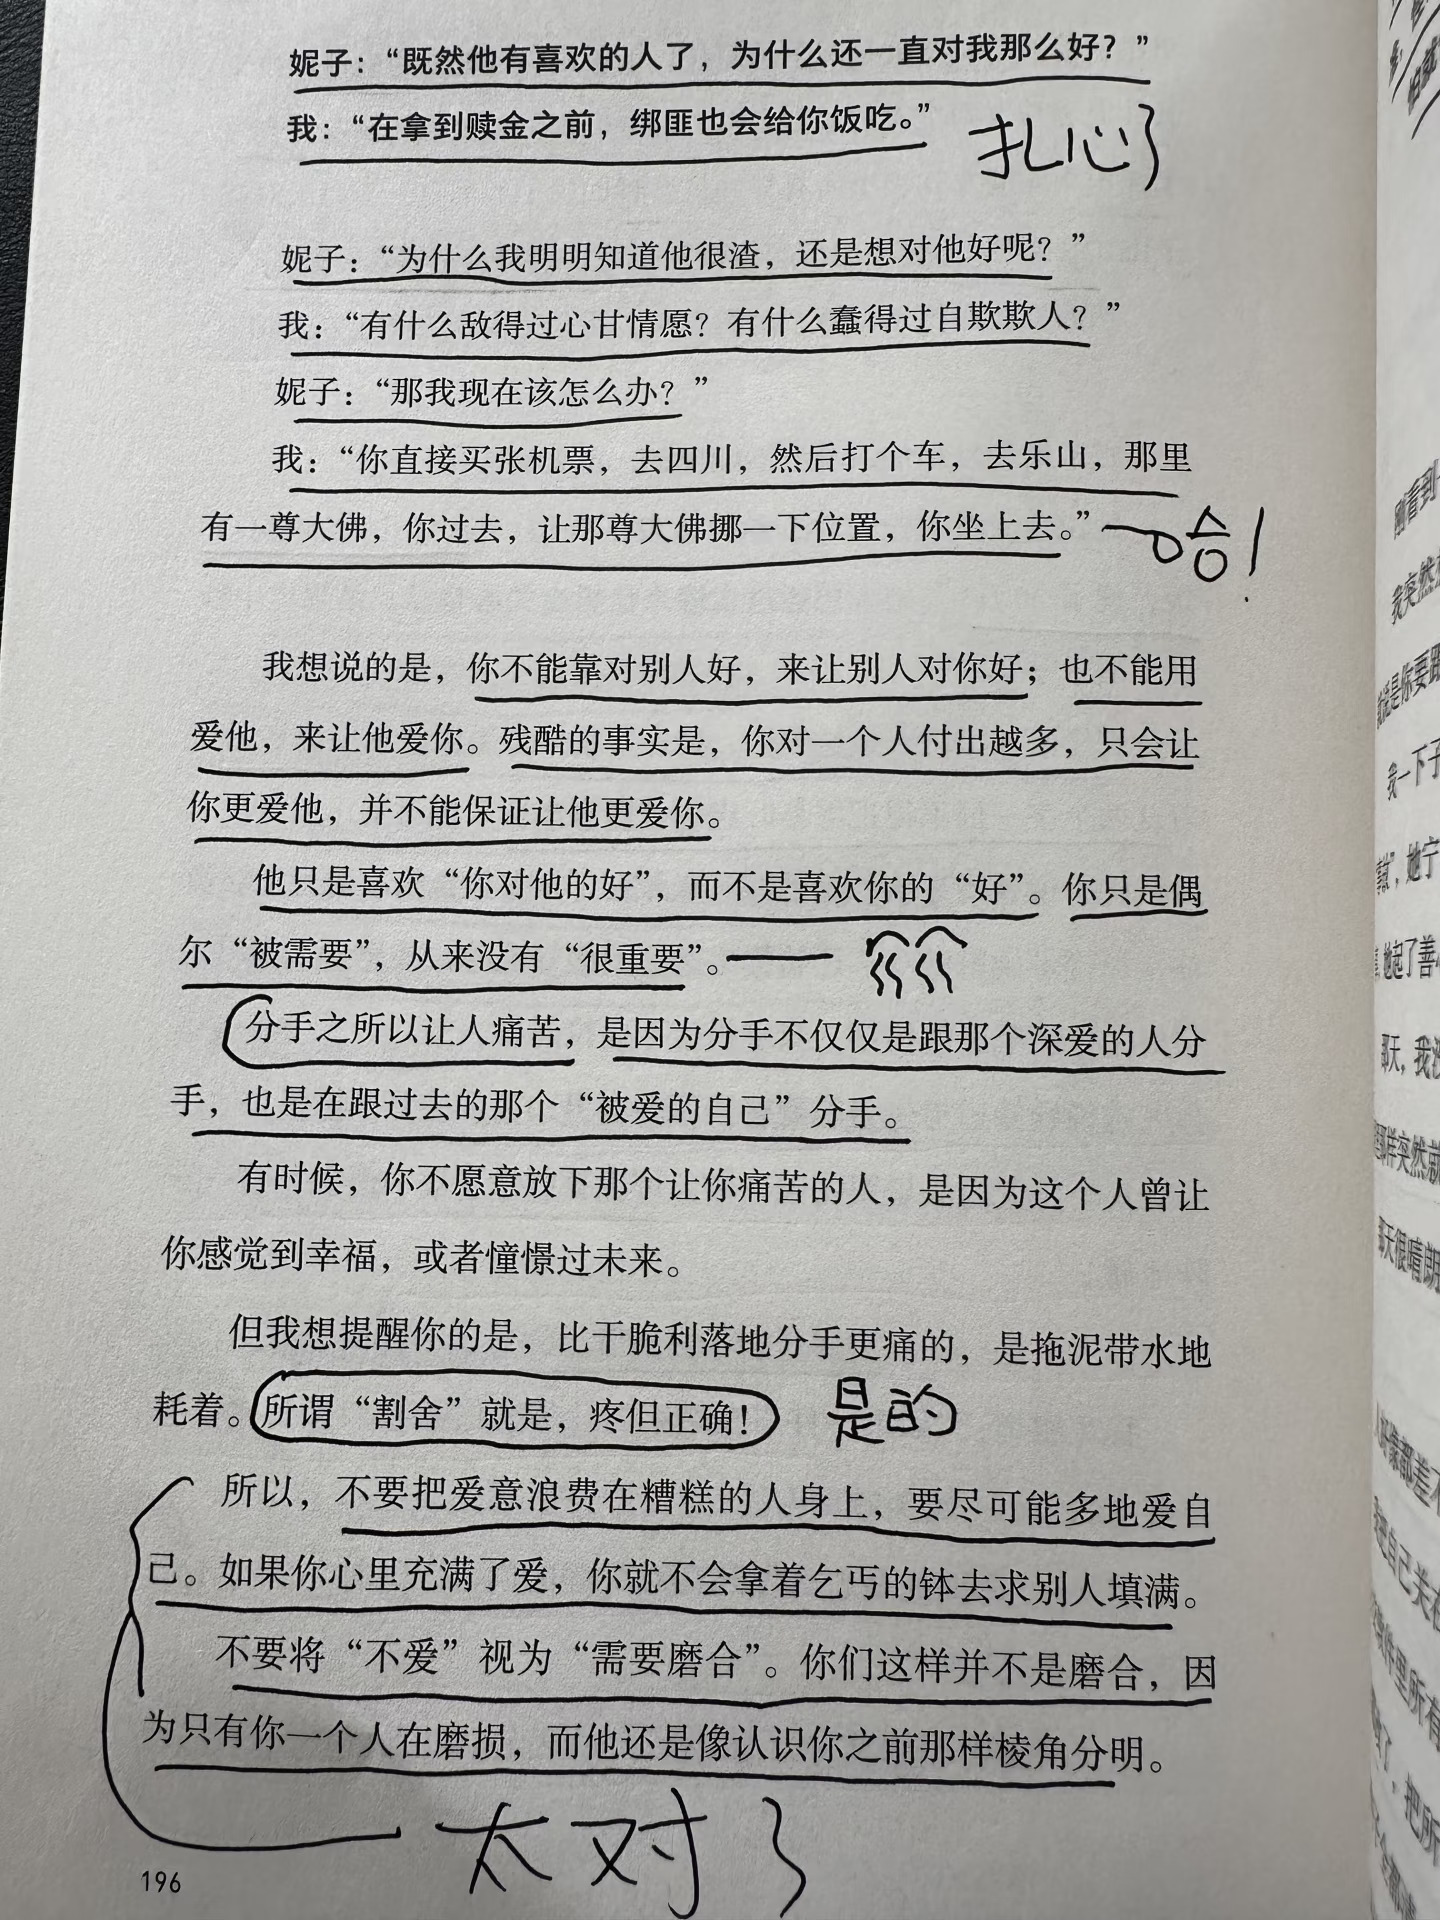 妮子：“既然他有喜欢的人了，为什么还一直对我那么好？”
我：“在拿到赎金之前，绑匪也会给你饭吃。”
扎心了
妮子：“为什么我明明知道他很渣，还是想对他好呢？”
我：“有什么敌得过心甘情愿？有什么蠢得过自欺欺人？”
妮子：“那我现在该怎么办？”
我：“你直接买张机票，去四川，然后打个车，去乐山，那里
有一尊大佛，你过去，让那尊大佛挪一下位置，你坐上去。”
哈！
我想说的是，你不能靠对别人好，来让别人对你好；也不能用
爱他，来让他爱你。残酷的事实是，你对一个人付出越多，只会让
你更爱他，并不能保证让他更爱你。
他只是喜欢“你对他的好”，而不是喜欢你的“好”。你只是偶
尔“被需要”，从来没有“很重要”。
分手之所以让人痛苦，是因为分手不仅仅是跟那个深爱的人分
手，也是在跟过去的那个“被爱的自己”分手。
有时候，你不愿意放下那个让你痛苦的人，是因为这个人曾让
你感觉到幸福，或者憧憬过未来。
但我想提醒你的是，比干脆利落地分手更痛的，是拖泥带水地
耗着。所谓“割舍”就是，疼但正确！
是的
所以，不要把爱意浪费在糟糕的人身上，要尽可能多地爱自
己。如果你心里充满了爱，你就不会拿着乞丐的钵去求别人填满。
不要将“不爱”视为“需要磨合”。你们这样并不是磨合，因
为只有你一个人在磨损，而他还是像认识你之前那样棱角分明。
太对了
196
刚看到
我突然
是你要跟
我一下子
，她宁
她起了善
那天，我没
那样突然就
那天很晴朗
好像都差不
自己关在
件里所有
了，把所